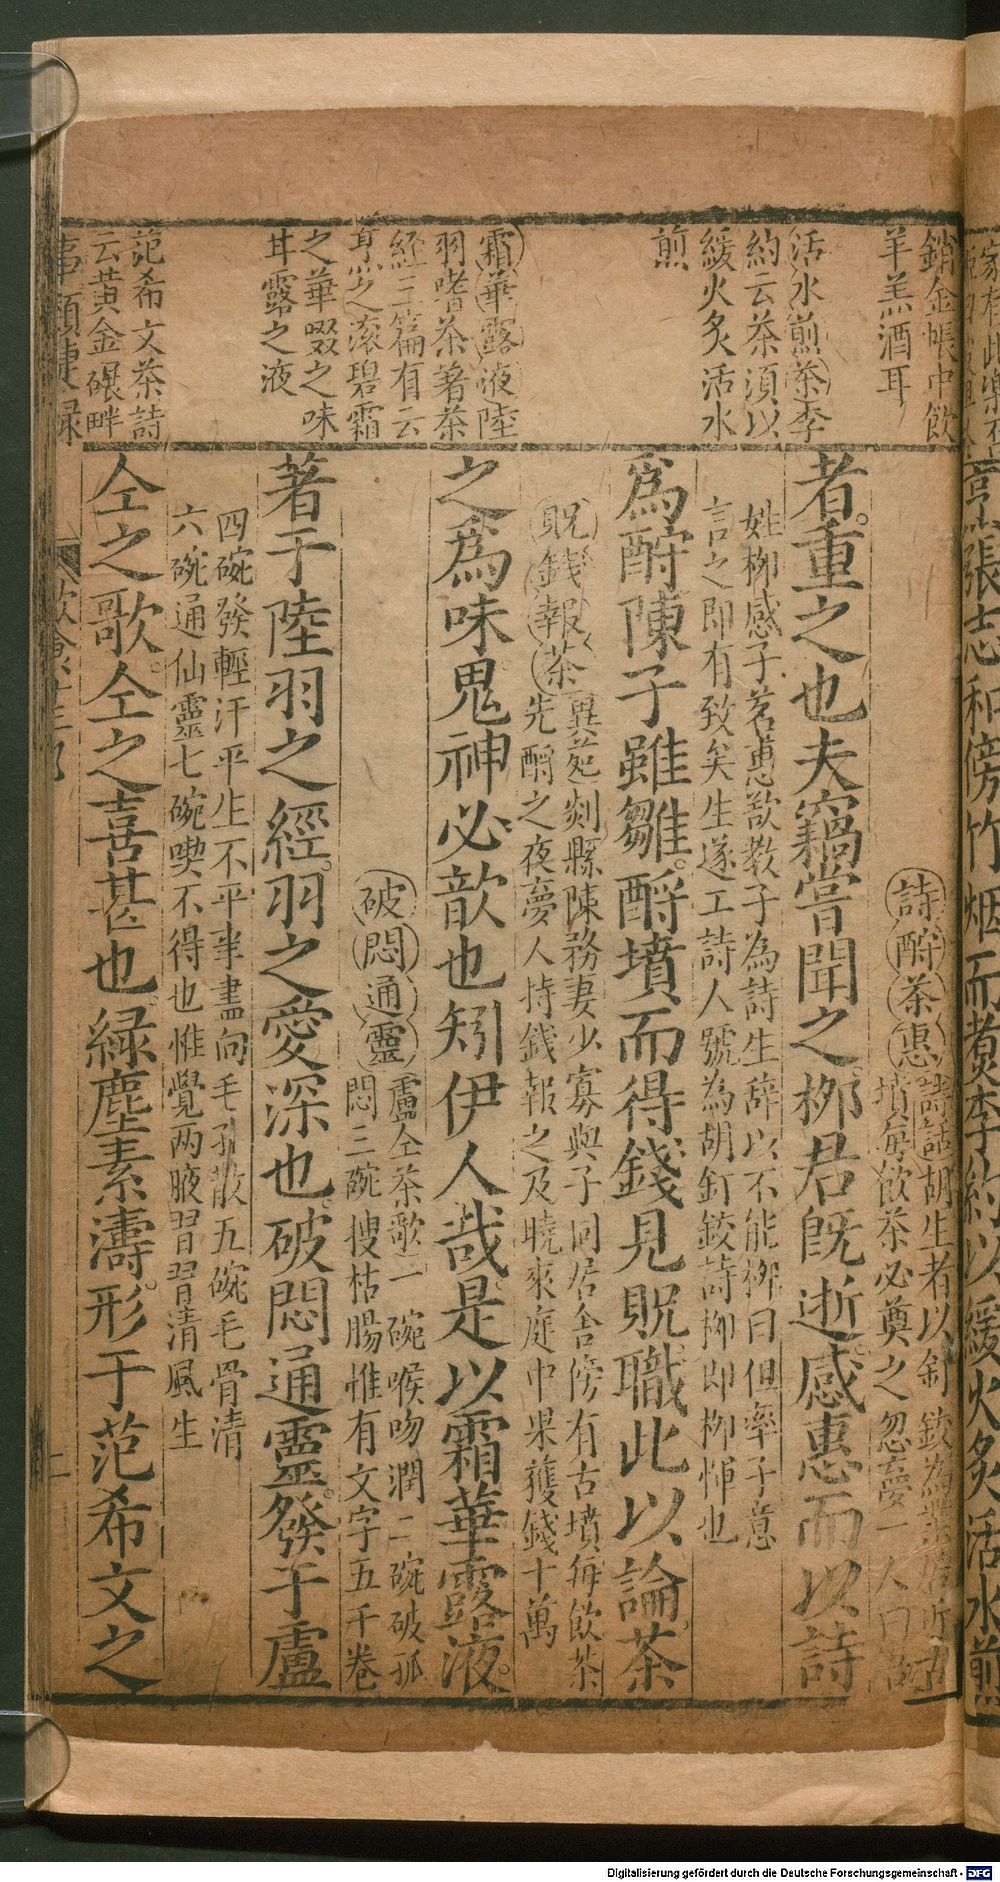 銷金帳中飲
羊羔酒耳
活水煎茶李
約云茶須以
緩火炙活水
煎
霜華露液陸
羽嗜茶著茶
經三篇有云
之滾碧霜
之華啜之味
甘露之液
范希文茶詩
云黃金碾畔
詩酧茶惠詩話胡生者以釘鉸為業居近
墳每飲茶必奠之忽夢一人曰吾
者重之也夫竊嘗聞之栁君旣逝感惠而以詩
姓栁感子茗惠欲教子為詩生辞以不能栁曰但率子意
言之即有致矣生遂工詩人號為胡釘鉸詩栁即栁惲也
爲酧陳子雖雛酧墳而得錢見貺職此以論茶
貺錢報茶異苑剡縣陳務妻少寡與子同居舍傍有古墳每飲茶
先酧之夜夢人持錢報之及曉來庭中果獲錢十萬
之爲味鬼神必歆也矧伊人哉是以霜華露液
破悶通靈盧仝茶歌一碗喉吻潤二碗破孤
悶三碗搜枯腸惟有文字五千巻
著于陸羽之經羽之愛深也破悶通靈發于盧
四碗發輕汗平生不平事盡向毛孔散五碗毛骨清
六碗通仙靈七碗喫不得也惟覺两腋習習清風生
仝之歌仝之喜甚也緑塵素濤形于范希文之
二
亨張志和傍竹烟而煮李約以緩火炙活水煎
Digitalisierung gefördert durch die Deutsche Forschungsgemeinschaft - DFG